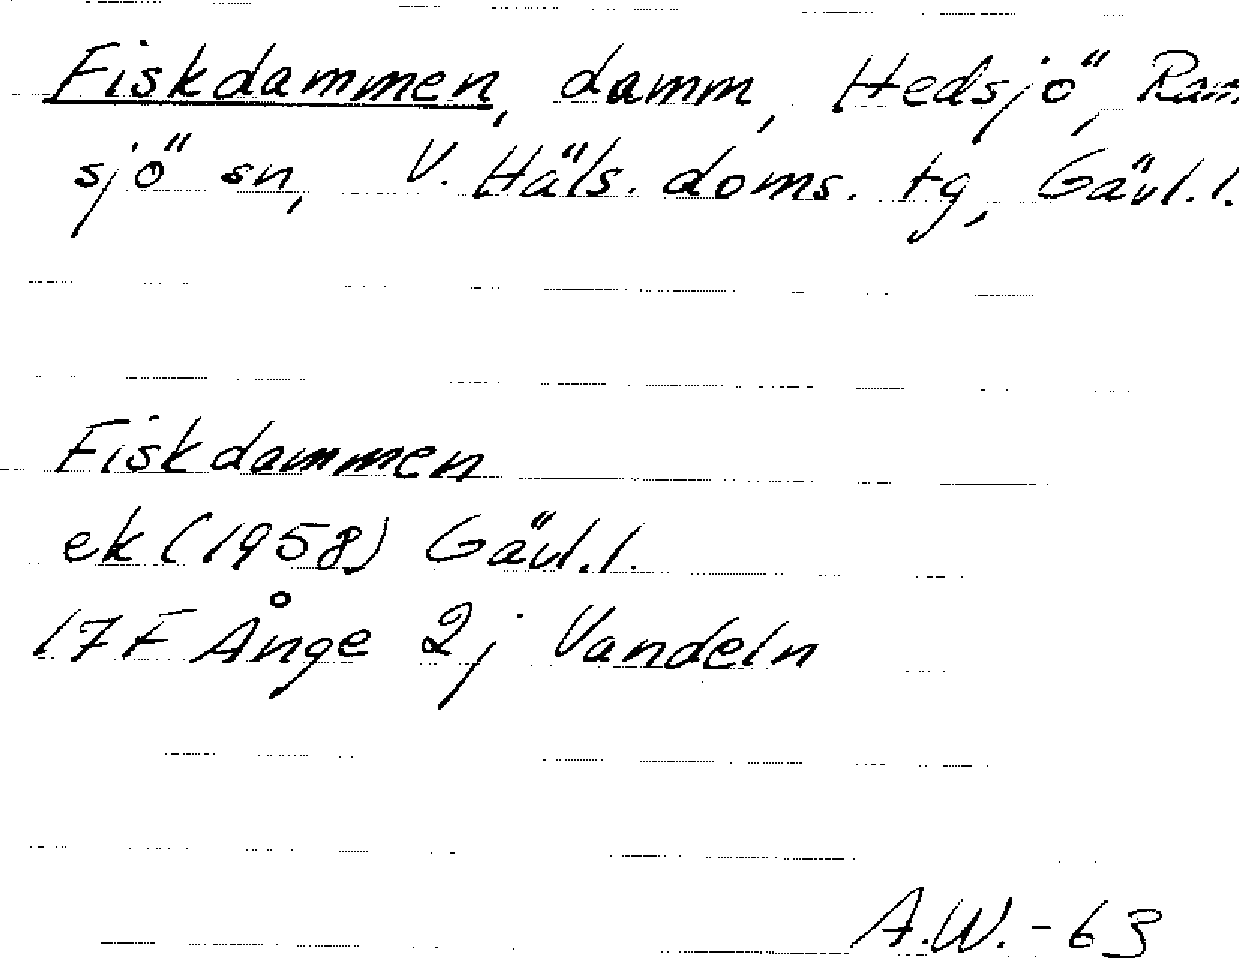 Fiskdammen, damm, Hedsjö, Ram
sjö sn, V. Häls. doms. tg, Gävl.l.
Fiskdammen
ek (1958) Gävl.l.
17 F Ånge 2j Vandeln
A.W.-63